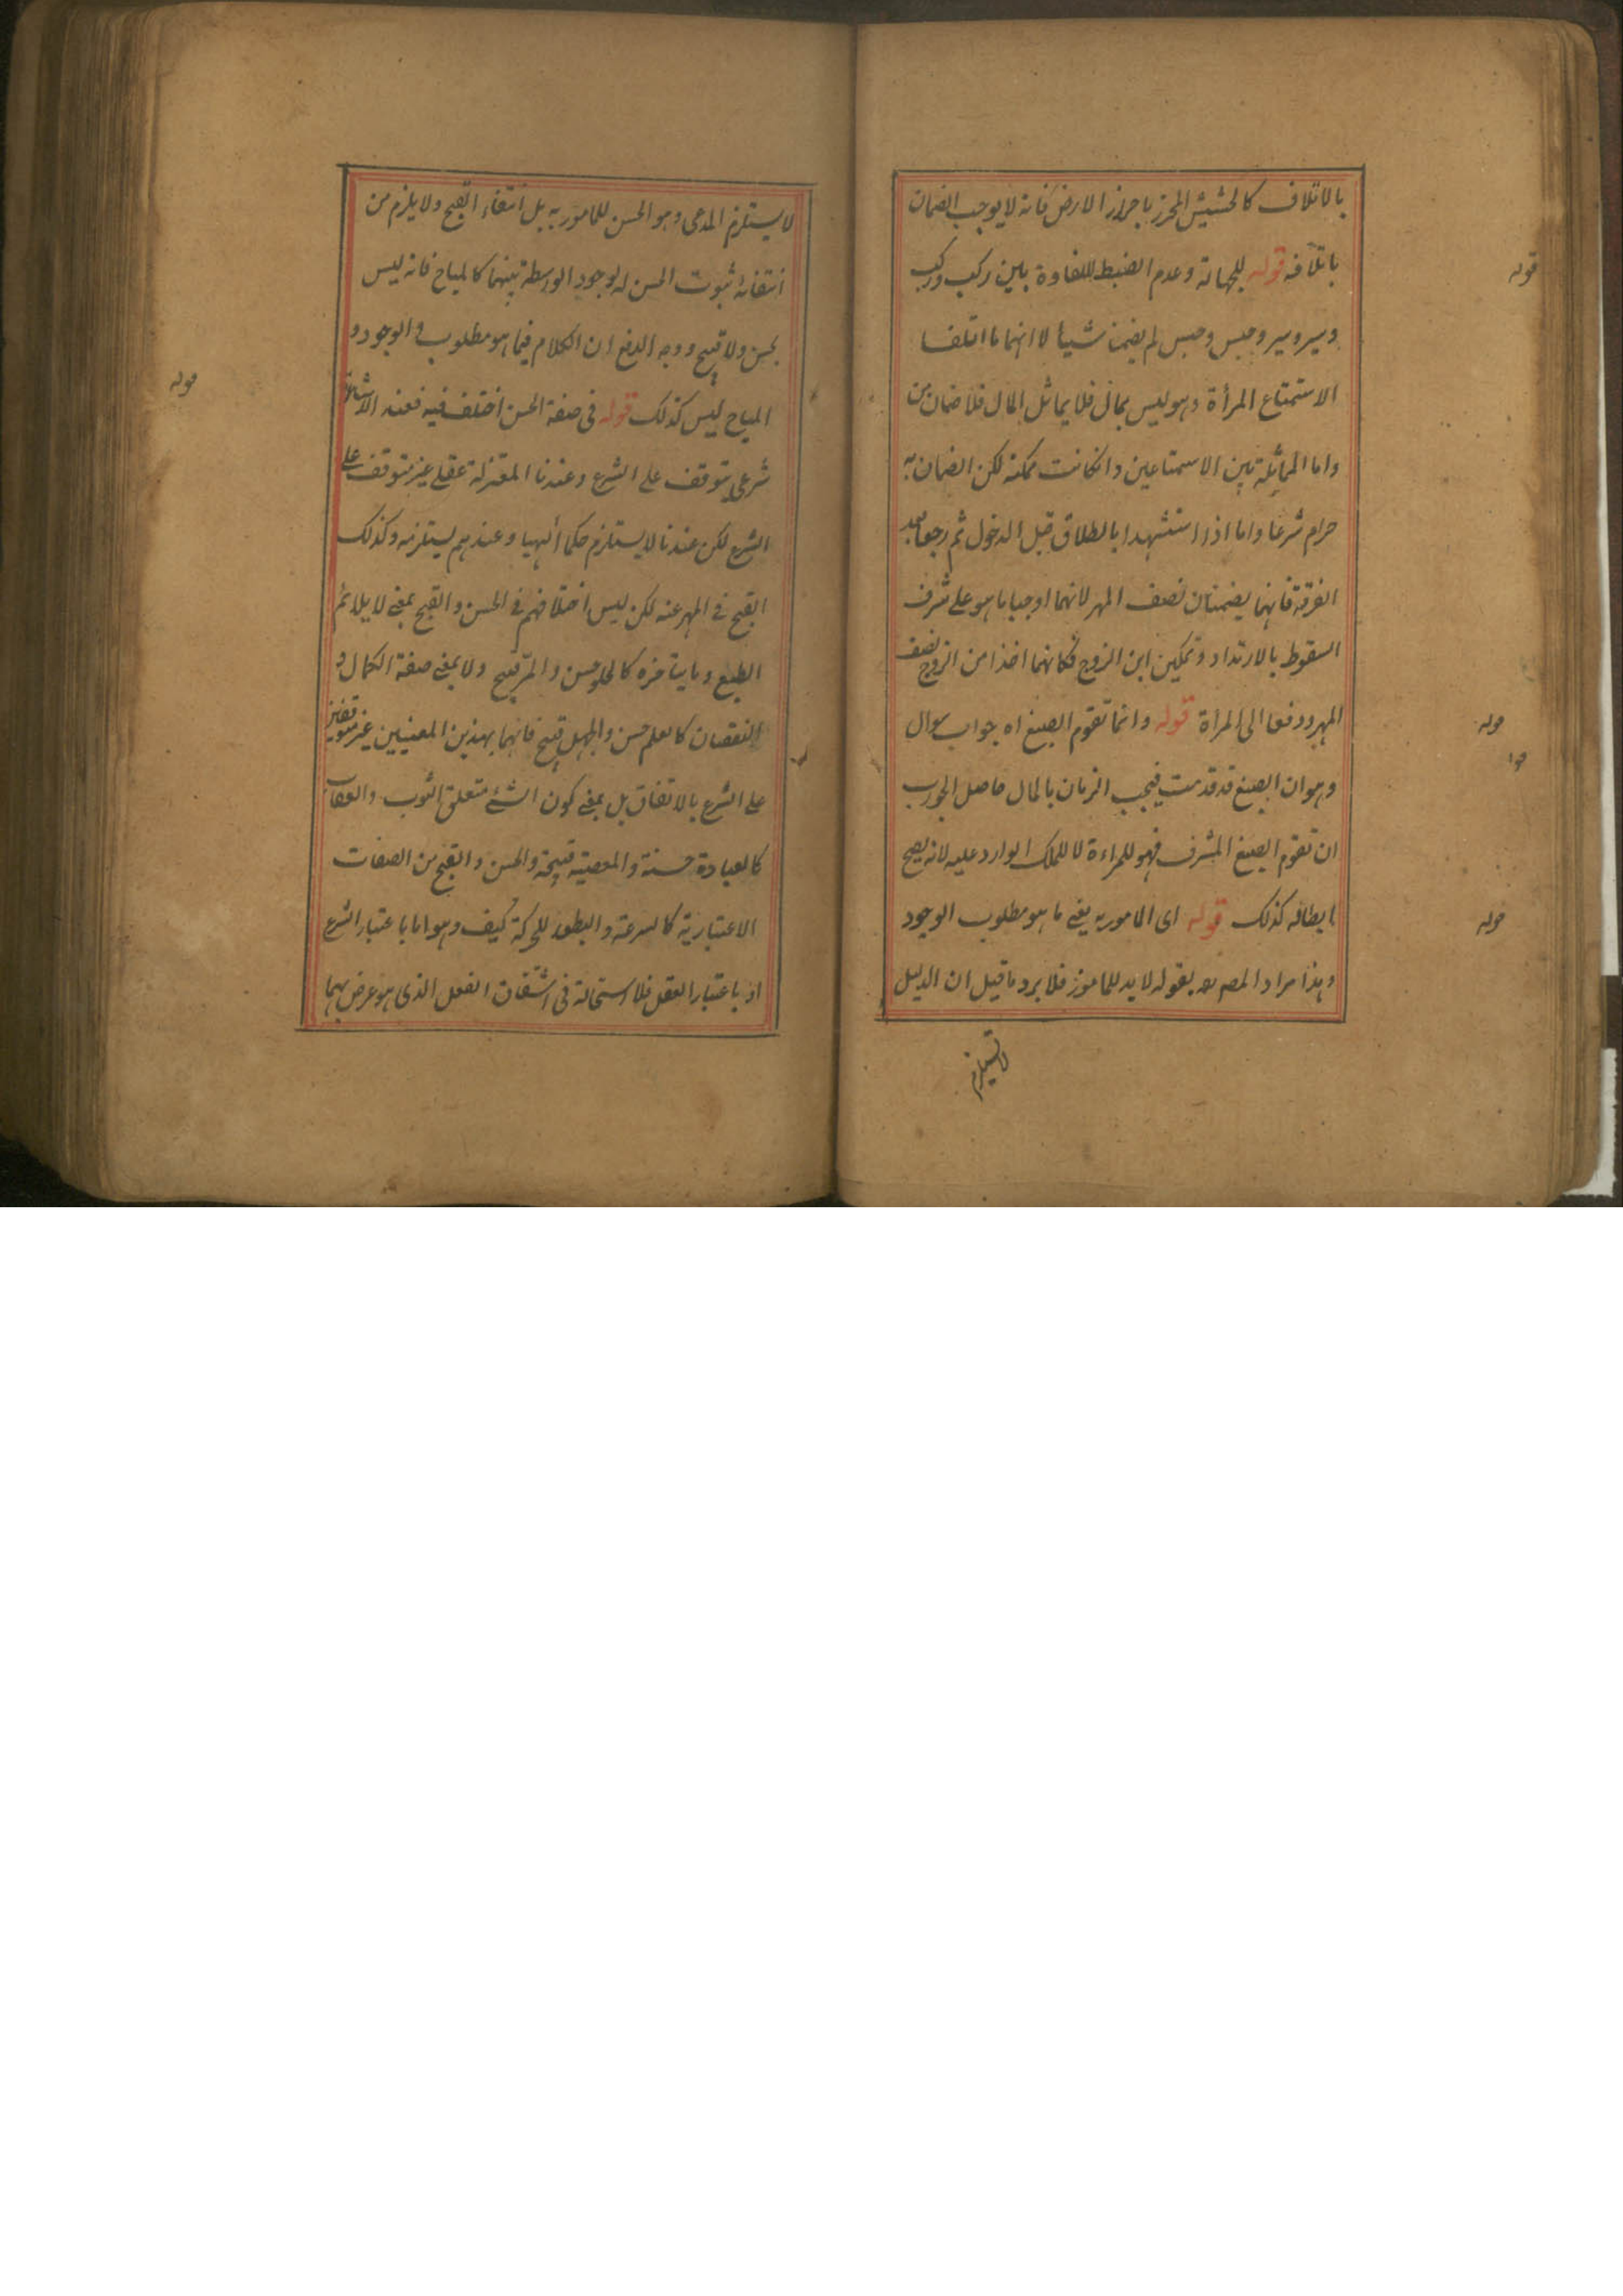 بالاتلاف كالحشيش المحرز باحراز الارض فانه لا يوجب الضمان
باتلافه قوله للجهالة وعدم الضبط للتفاوة بين ركب وركب
وسير وسير وحبس وحبس لم يضمنا شيأ لا انهما ما اتلفا
الاستمتاع المرأة وهو ليس بمال فلا يماثل المال فلا ضمان
واما المماثلة بين الاستمتاعين وانكانت ممكنة لكن الضمان به
حرام شرعا واما اذا استشهدا بالطلاق قبل الدخول ثم رجعا بعد
الفرقة فانهما يضمنان نصف المهر لانهما اوجبا ما هو على شرف
السقوط بالارتداد وتمكين ابن الزوج فكانهما اخذا من الزوج نصف
المهر ودفعا الى المراة قوله وانما تقوم البضع اه جواب سوال
وهو ان البضع قد قدمت فيجب الزمان بالمال حاصل الجواب
ان تقوم البضع المشرف فهو للمراءة لا للملك الوارد عليه لانه يصح
ابطاله كذلك قوله اى المامور به يعنى ما هو مطلوب الوجود
وهذا مراد المصـ بقوله لا بد للمامور فلا يرد ما قيل ان الدليل
لا يستلزم
قوله
قوله
قوله
لا يستلزم المدعى وهو الحسن للمامور به بل انتفاء القبح ولا يلزم من
انتفائه ثبوت الحسن له لوجود الواسطة بينهما كالمباح فانه ليس
بحسن ولا قبيح ووجه الدفع ان الكلام فيما هو مطلوب الوجود و
المباح ليس كذلك قوله فى صفة الحسن اختلف فيه فعند الاشاعرة
شرعى يتوقف على الشرع وعندنا المعتزلة عقلى غير متوقف على
الشرع لكن عندنا لا يستلزم حكما الهيا وعندهم يستلزمه وكذلك
القبح فى المهر عنه لكن ليس اختلافهم فى الحسن والقبح بمعنى لا يلائم
الطبع وما ينافره كالحلو حسن والمر قبيح ولا بمعنى صفة الكمال و
النقصان كالعلم حسن والجهل قبيح فانهما بهذين المعنيين غير متوقفين
على الشرع بالاتفاق بل بمعنى كون الشئ متعلق الثوب والعقاب
كالعبادة حسنة والمعصية قبيحة والحسن والقبح من الصفات
الاعتبارية كالسرعة والبطوء للحركة كيف وهو اما باعتبار الشرع
او باعتبار العقل فلا استحالة فى اشتقاق الفعل الذى هو عرض بهما
قوله